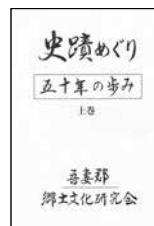 史蹟めぐり
五十年の歩み
上巻
吾妻郡
郷土文化研究会